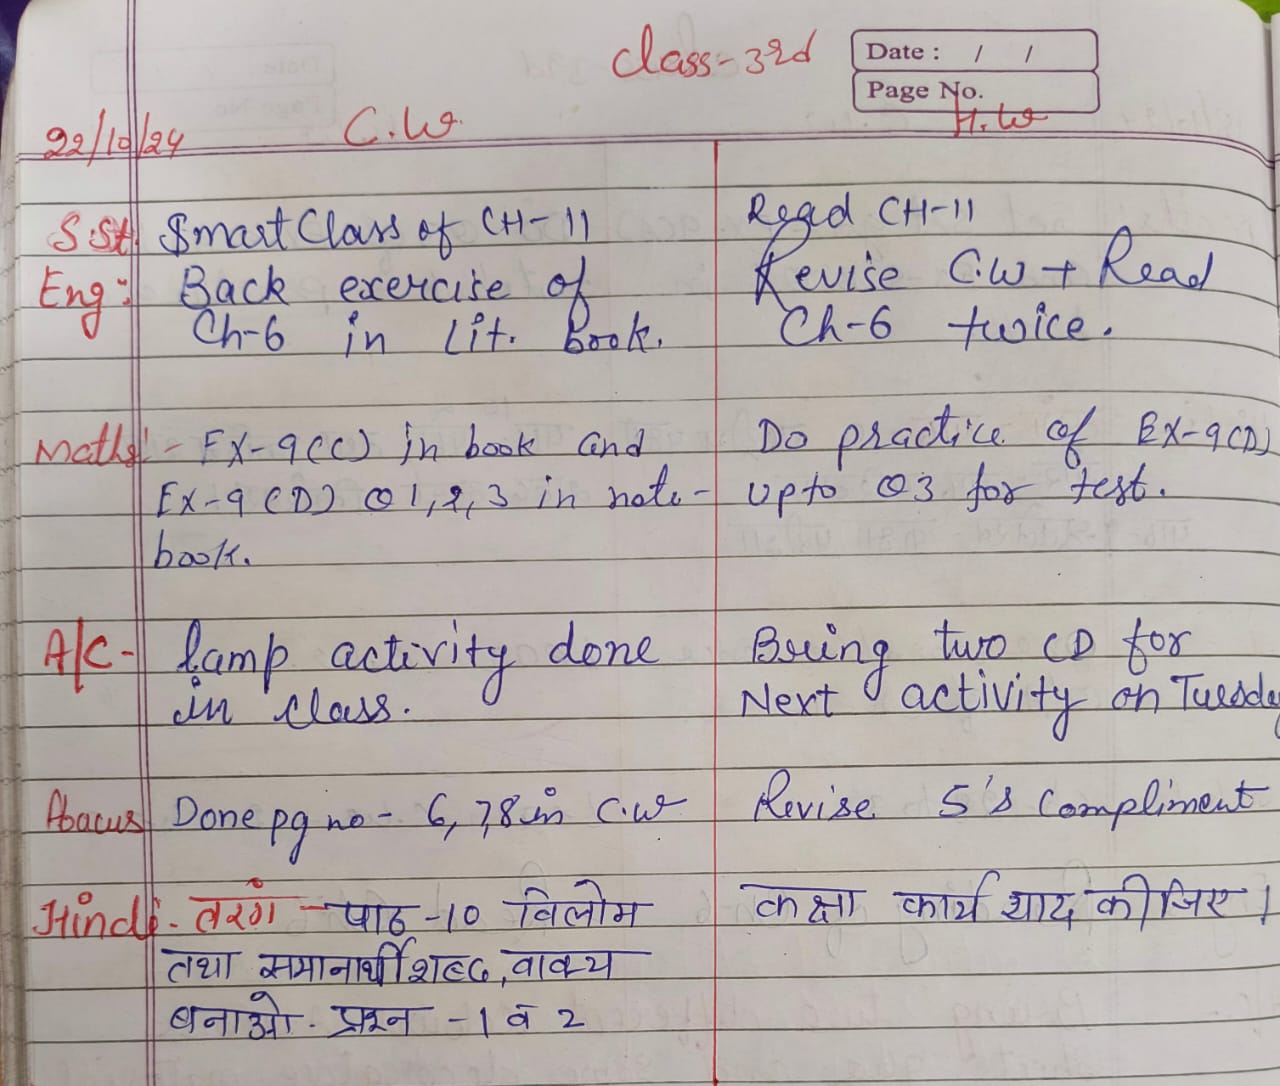 Class-3rd
Date : / /
Page No.
22/10/24 C.W. H.W
S.St. Smart Class of CH-11 Read CH-11
Eng:- Back exercise of Revise C.W + Read
Ch-6 in Lit. Book. Ch-6 twice.
Maths:- EX-9(C) in book and Do practice of EX-9(D)
EX-9(D) Q1,2,3 in note- upto Q3 for test.
book.
A/C- Lamp activity done Bring two CD for
in class. Next activity on Tuesday
Abacus Done pg no- 6,7,8 in C.W Revise 5's Compliment
Hindi- तरंग - पाठ-10 विलोम कक्षा कार्य याद कीजिए।
तथा समानार्थी शब्द, वाक्य
बनाओ. प्रश्न -1 व 2